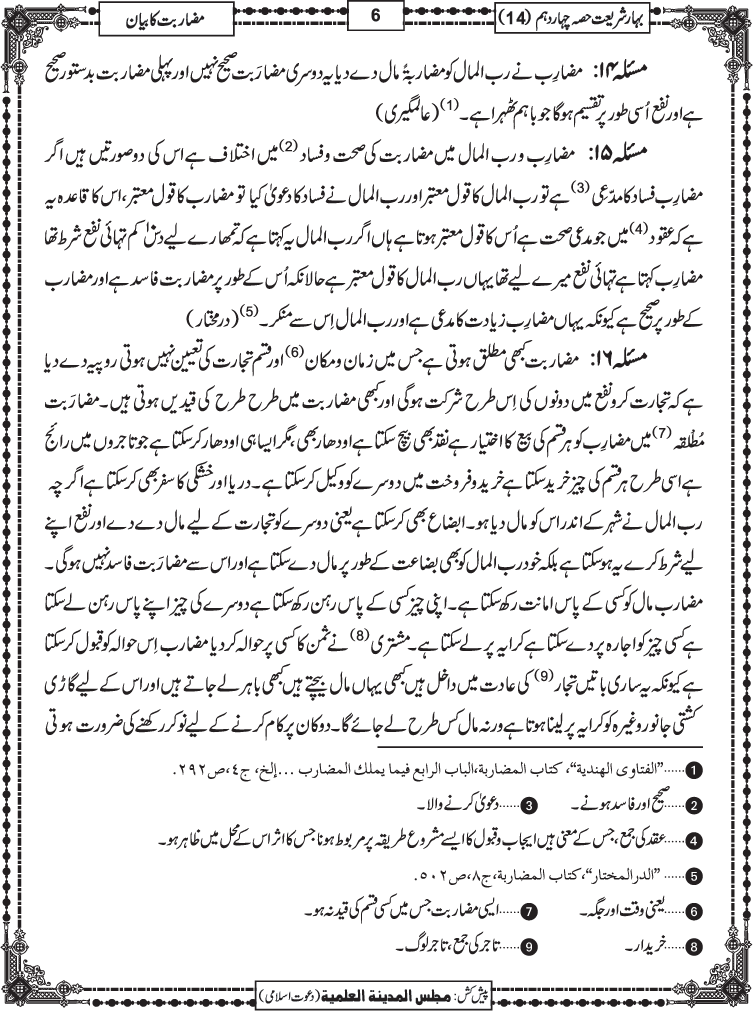 بہار شریعت حصہ چہاردہم (14)
6
مضاربت کا بیان
مسئلہ ۱۴: مضارِب نے رب المال کو مضاربۃً مال دے دیا یہ دوسری مضارَبت صحیح نہیں اور پہلی مضاربت بدستور صحیح
ہے اور نفع اُسی طور پر تقسیم ہوگا جو باہم ٹھہرا ہے۔(1) (عالمگیری)
مسئلہ ۱۵: مضارِب و رب المال میں مضاربت کی صحت و فساد(2) میں اختلاف ہے اس کی دو صورتیں ہیں اگر
مضارِب فساد کا مدّعِی(3) ہے تو رب المال کا قول معتبر اور رب المال نے فساد کا دعویٰ کیا تو مضارب کا قول معتبر، اس کا قاعدہ یہ
ہے کہ عقود(4) میں جو مدعی صحت ہے اُس کا قول معتبر ہوتا ہے ہاں اگر رب المال یہ کہتا ہے کہ تمھارے لیے دس۱۰ کم تہائی نفع شرط تھا
مضارِب کہتا ہے تہائی نفع میرے لیے تھا یہاں رب المال کا قول معتبر ہے حالانکہ اُس کے طور پر مضاربت فاسد ہے اور مضارب
کے طور پر صحیح ہے کیونکہ یہاں مضارب زیادت کا مدعی ہے اور رب المال اِس سے منکر۔(5) (درمختار)
مسئلہ ۱۶: مضاربت کبھی مطلق ہوتی ہے جس میں زمان و مکان(6) اور قسم تجارت کی تعیین نہیں ہوتی روپیہ دے دیا
ہے کہ تجارت کرو نفع میں دونوں کی اِس طرح شرکت ہوگی اور کبھی مضاربت میں طرح طرح کی قیدیں ہوتی ہیں۔ مضارَبت
مُطْلقہ(7) میں مضارِب کو ہر قسم کی بیع کا اختیار ہے نقد بھی بیچ سکتا ہے اودھار بھی، مگر ایسا ہی اودھار کرسکتا ہے جو تاجروں میں رائج
ہے اسی طرح ہر قسم کی چیز خرید سکتا ہے خرید و فروخت میں دوسرے کو وکیل کرسکتا ہے۔ دریا اور خشکی کا سفر بھی کرسکتا ہے اگر چہ
رب المال نے شہر کے اندر اس کو مال دیا ہو۔ ابضاع بھی کرسکتا ہے یعنی دوسرے کو تجارت کے لیے مال دے دے اور نفع اپنے
لیے شرط کرے یہ ہوسکتا ہے بلکہ خود رب المال کو بھی بضاعت کے طور پر مال دے سکتا ہے اور اس سے مضارَبت فاسد نہیں ہوگی۔
مضارب مال کو کسی کے پاس امانت رکھ سکتا ہے۔ اپنی چیز کسی کے پاس رہن رکھ سکتا ہے دوسرے کی چیز اپنے پاس رہن لے سکتا
ہے کسی چیز کو اجارہ پر دے سکتا ہے کرایہ پر لے سکتا ہے۔ مشتری(8) نے ثمن کا کسی پر حوالہ کردیا مضارب اِس حوالہ کو قبول کرسکتا
ہے کیونکہ یہ ساری باتیں تجار(9) کی عادت میں داخل ہیں کبھی یہاں مال بیچتے ہیں کبھی باہر لے جاتے ہیں اور اس کے لیے گاڑی
کشتی جانور وغیرہ کو کرایہ پر لینا ہوتا ہے ورنہ مال کس طرح لے جائے گا۔ دوکان پر کام کرنے کے لیے نوکر رکھنے کی ضرورت ہوتی
1 ......”الفتاوی الھندیة“، کتاب المضاربة،الباب الرابع فیما یملك المضارب ...إلخ، ج٤،ص٢٩٢.
2 ......صحیح اور فاسد ہونے۔ 3 ......دعویٰ کرنے والا۔
4 ......عقد کی جمع، جس کے معنی ہیں ایجاب و قبول کا ایسے مشروع طریقہ پر مربوط ہونا جس کا اثر اس کے محل میں ظاہر ہو۔
5 ......”الدرالمختار“، کتاب المضاربة،ج٨،ص٥٠٢.
6 ......یعنی وقت اور جگہ۔ 7 ......ایسی مضاربت جس میں کسی قسم کی قید نہ ہو۔
8 ......خریدار۔ 9 ......تاجر کی جمع، تاجر لوگ۔
پیش کش: مجلس المدینة العلمیة (دعوت اسلامی)